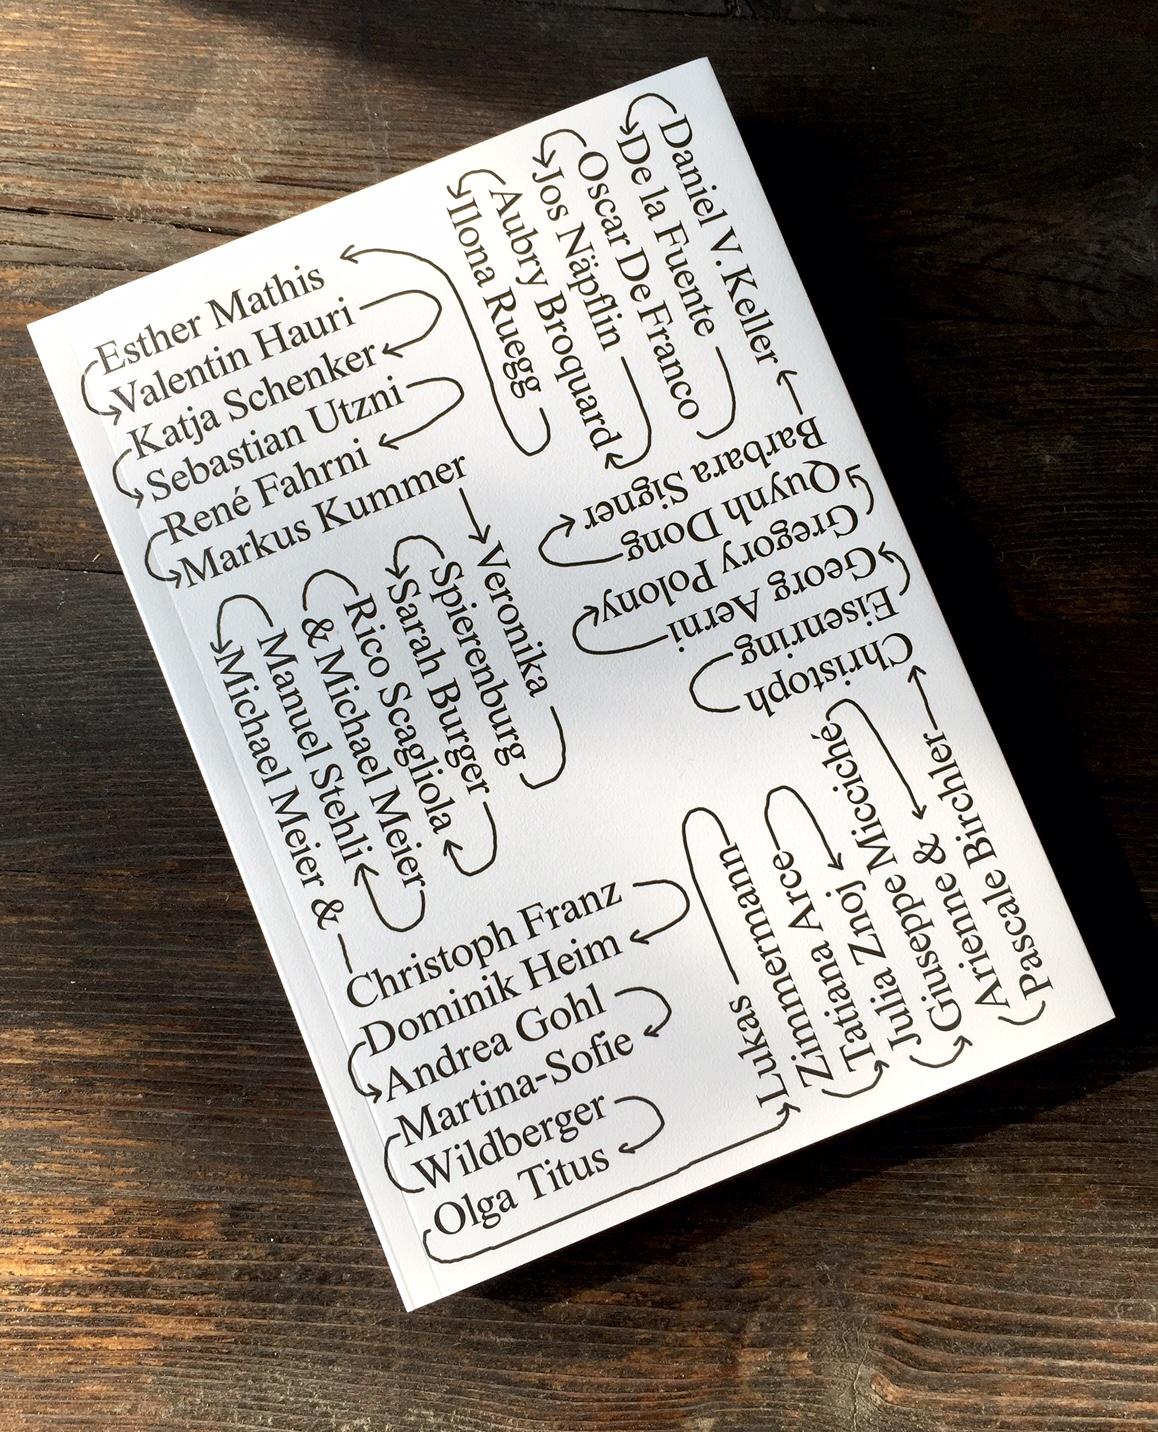 Daniel V. Keller
De la Fuente
Oscar De Franco
Jos Näpflin
Aubry Broquard
Ilona Ruegg
Esther Mathis
Valentin Hauri
Katja Schenker
Sebastian Utzni
René Fahrni
Markus Kummer
Veronika
Spierenburg
Sarah Burger
Rico Scagliola
& Michael Meier
Manuel Stehli
Michael Meier &
Christoph Franz
Dominik Heim
Andrea Gohl
Martina-Sofie
Wildberger
Olga Titus
Lukas
Zimmermann
Tatiana Arce
Julia Znoj
Giuseppe Micciché
Arienne &
Pascale Birchler
Christoph
Eisenring
Georg Aerni
Gregory Polony
Quynh Dong
Barbara Signer